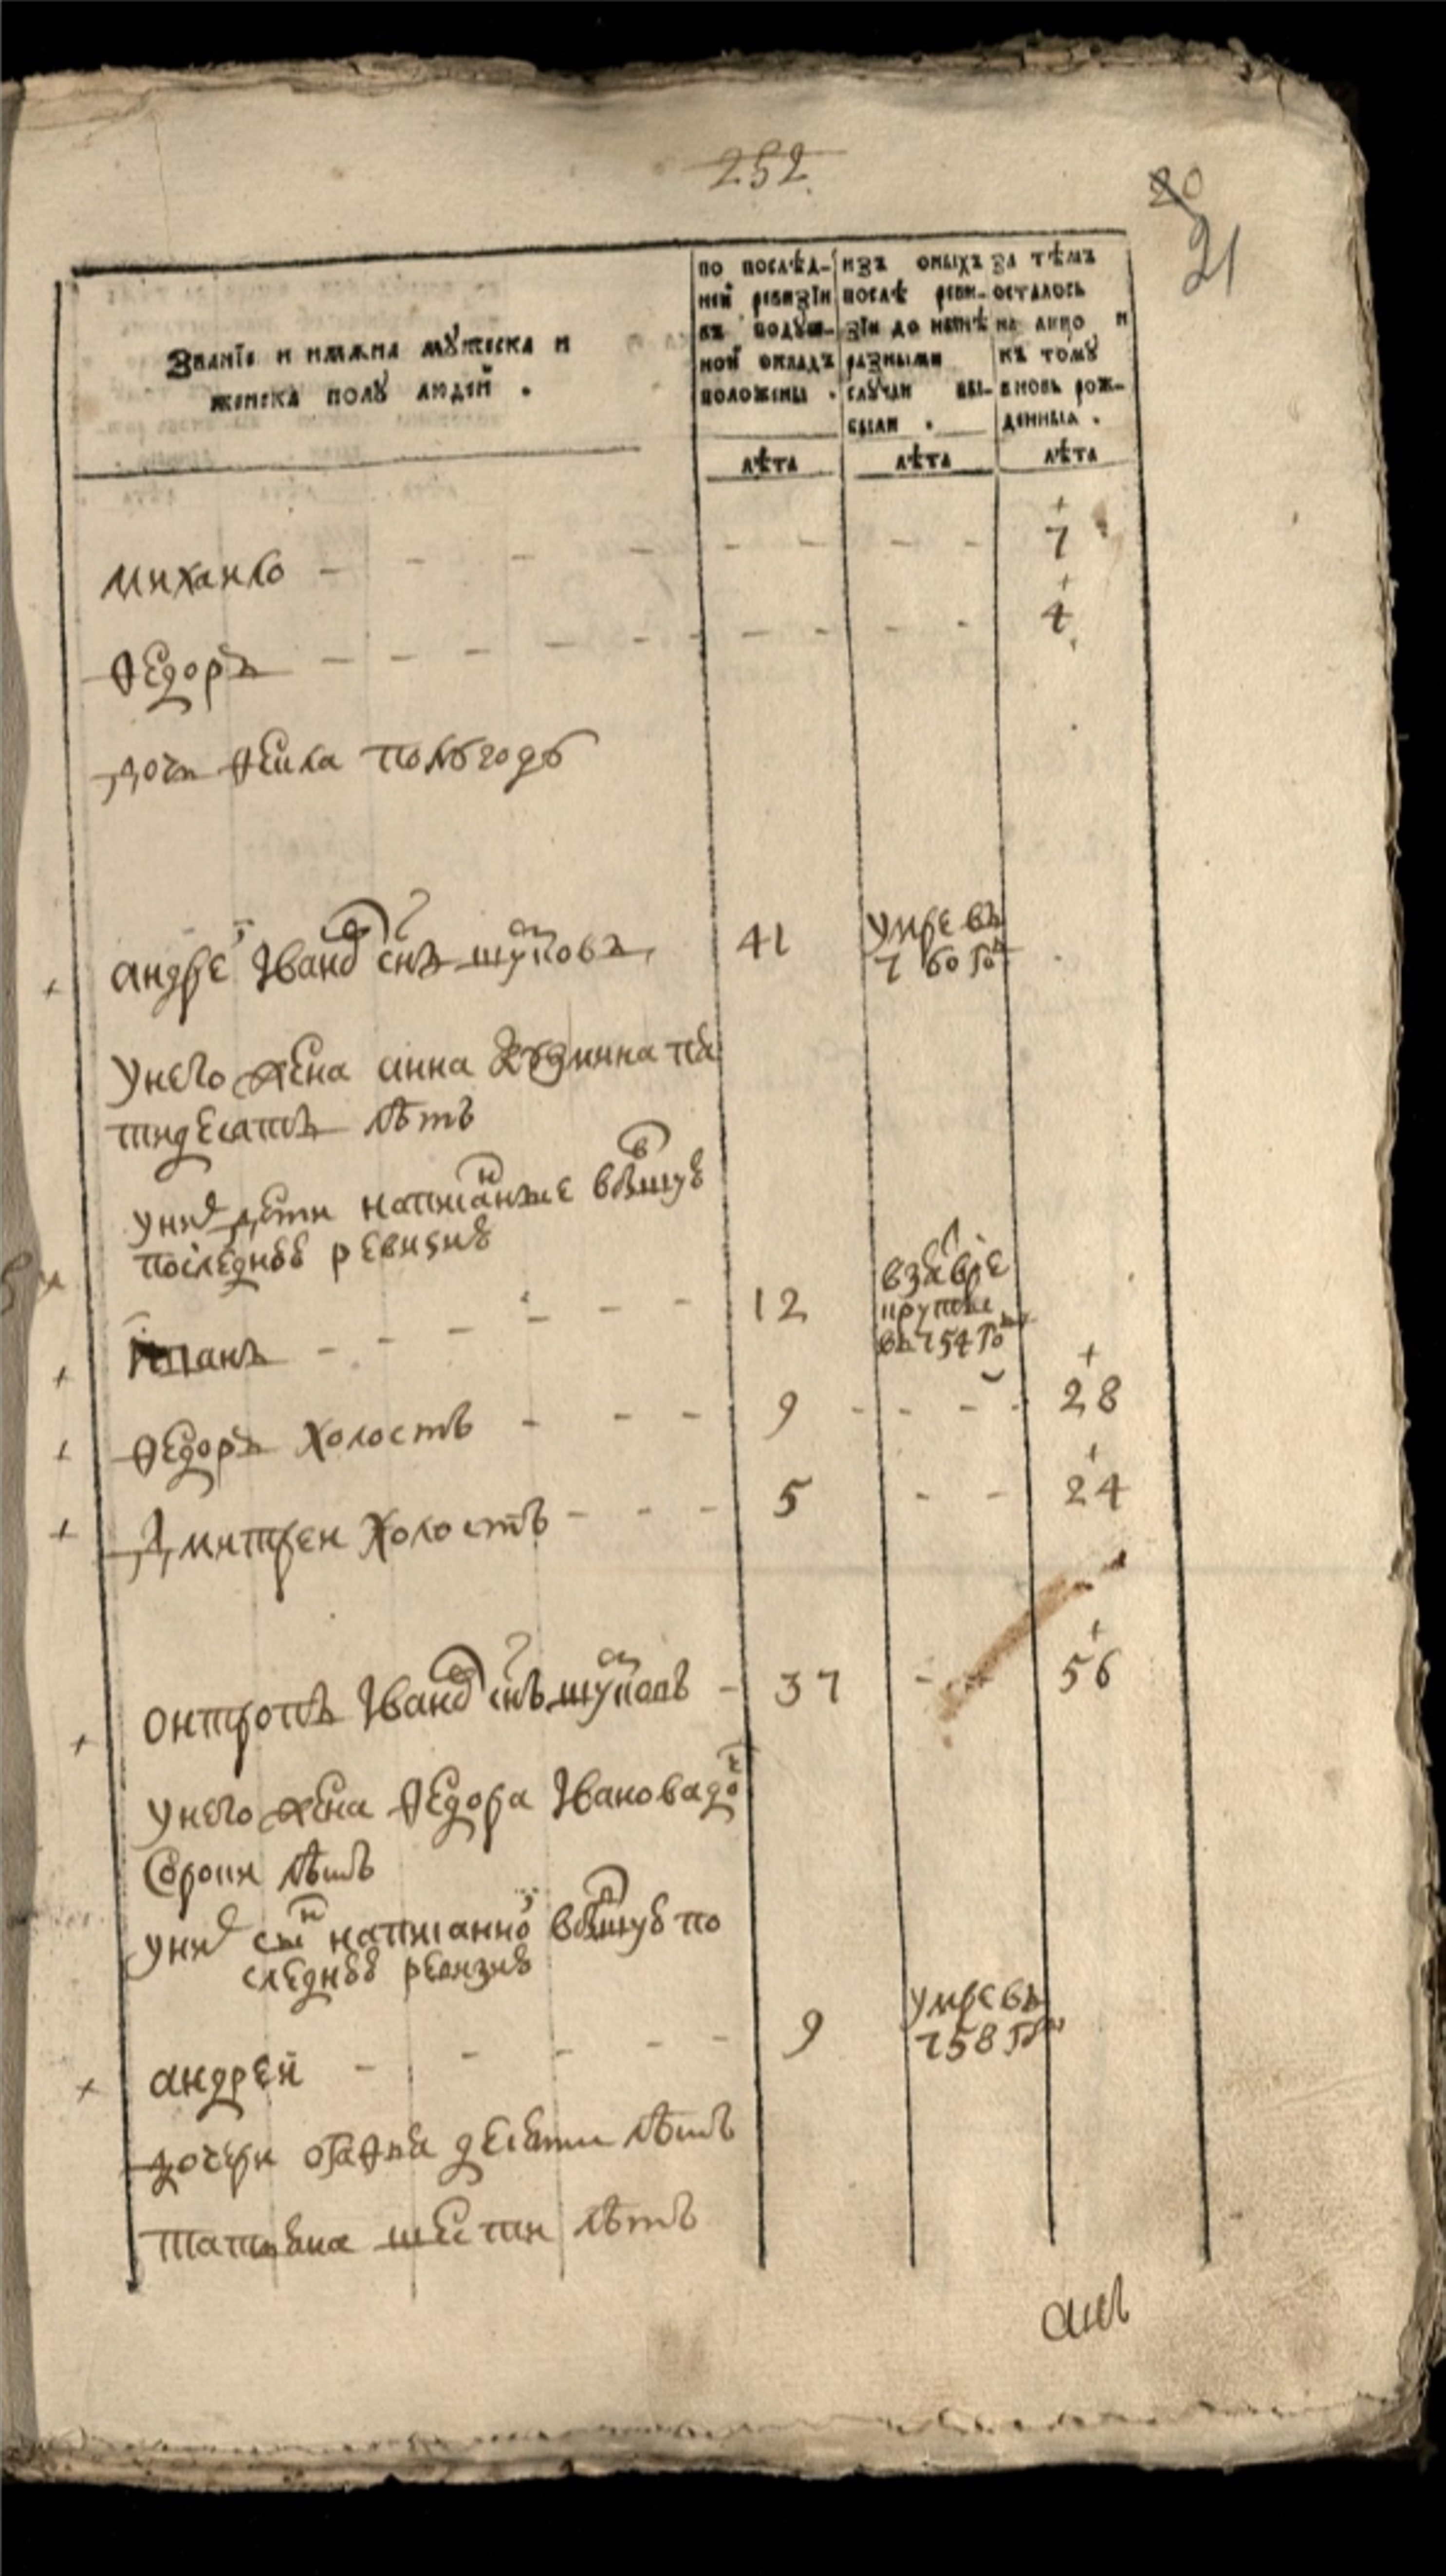 252
20
21
Званїе и имѧна мꙋжеска и
женска полꙋ людей .
по послѣд-
ней ревизїи
въ подꙋш-
ной окладъ
положены .
лѣта
изъ оныхъ
послѣ реви-
зїи до нынѣ
разными
слꙋчаи вы-
были .
лѣта
за тѣмъ
осталось
на лицо и
къ томꙋ
вновь рож-
денныѧ .
лѣта
михаило - - - - - - - - - 7
ѳедоръ - - - - - - - - - 4
дочь полъгодъ
андреи Иванов снъ щуковъ 41 умре въ
760 го
унего жена анна пя
тидесятъ лѣтъ
уних дети написанные впишую
последнюю ревизию
- - - - - 12 взя
въ 754 го
ѳедоръ холостъ - - - 9 - - - - 28
Дмитреи холостъ - - - 5 - - 24
онтропъ Иванов снъ щуковъ - 37 - - 56
унего жена ѳедора Иванова до
Сороки лѣтъ
уних сын написанно впишую по
следнюю ревизию
андрей - - - - - 9 умре въ
758 го
дочери десяти лѣтъ
татияна шести лѣтъ